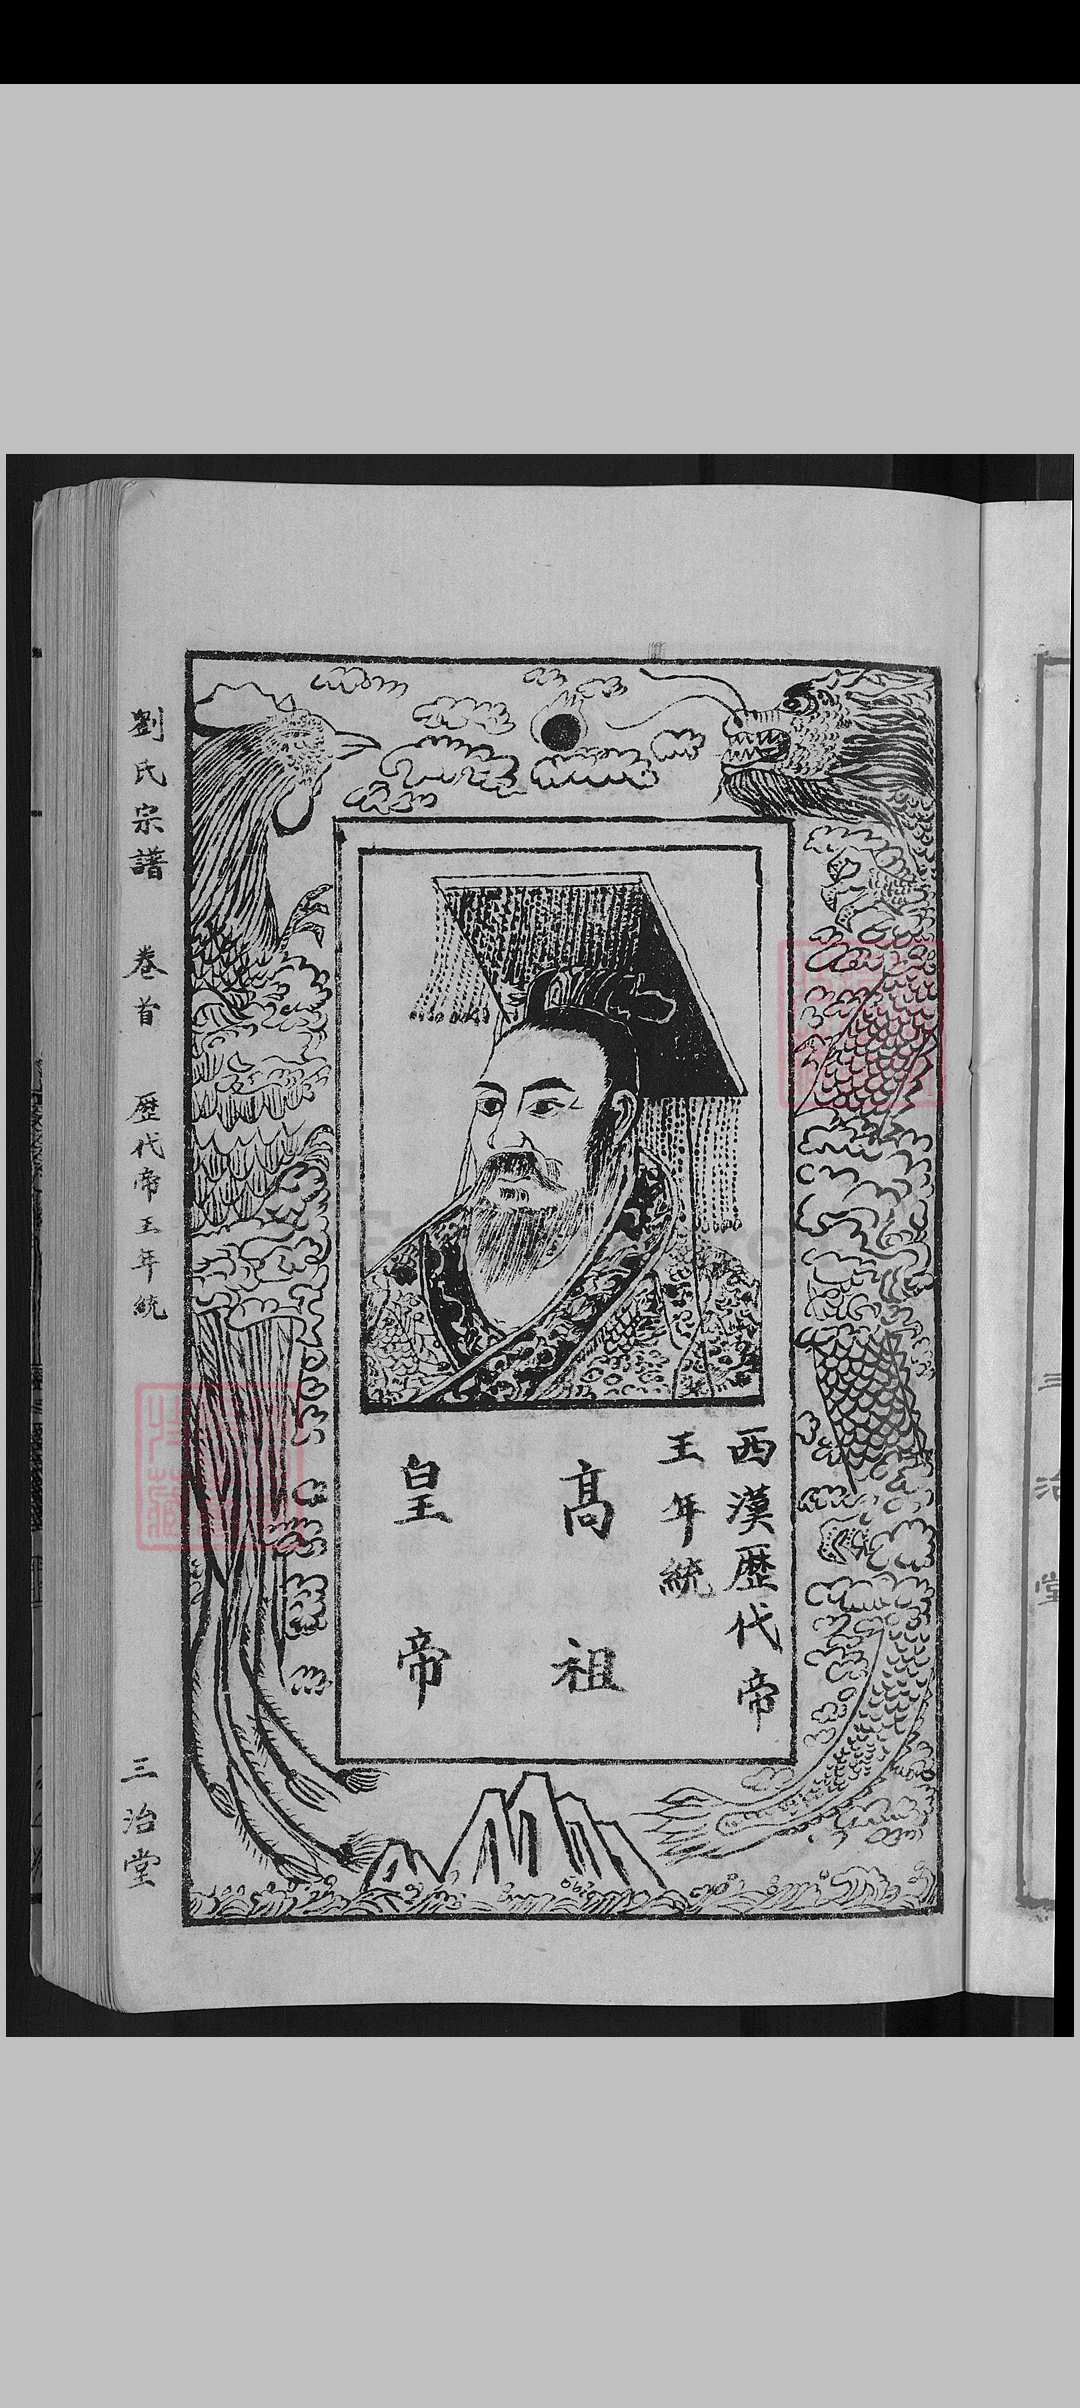 西漢歷代帝
王年統
高祖
皇帝
劉氏宗譜 卷首 歷代帝王年統 三治堂
三治堂